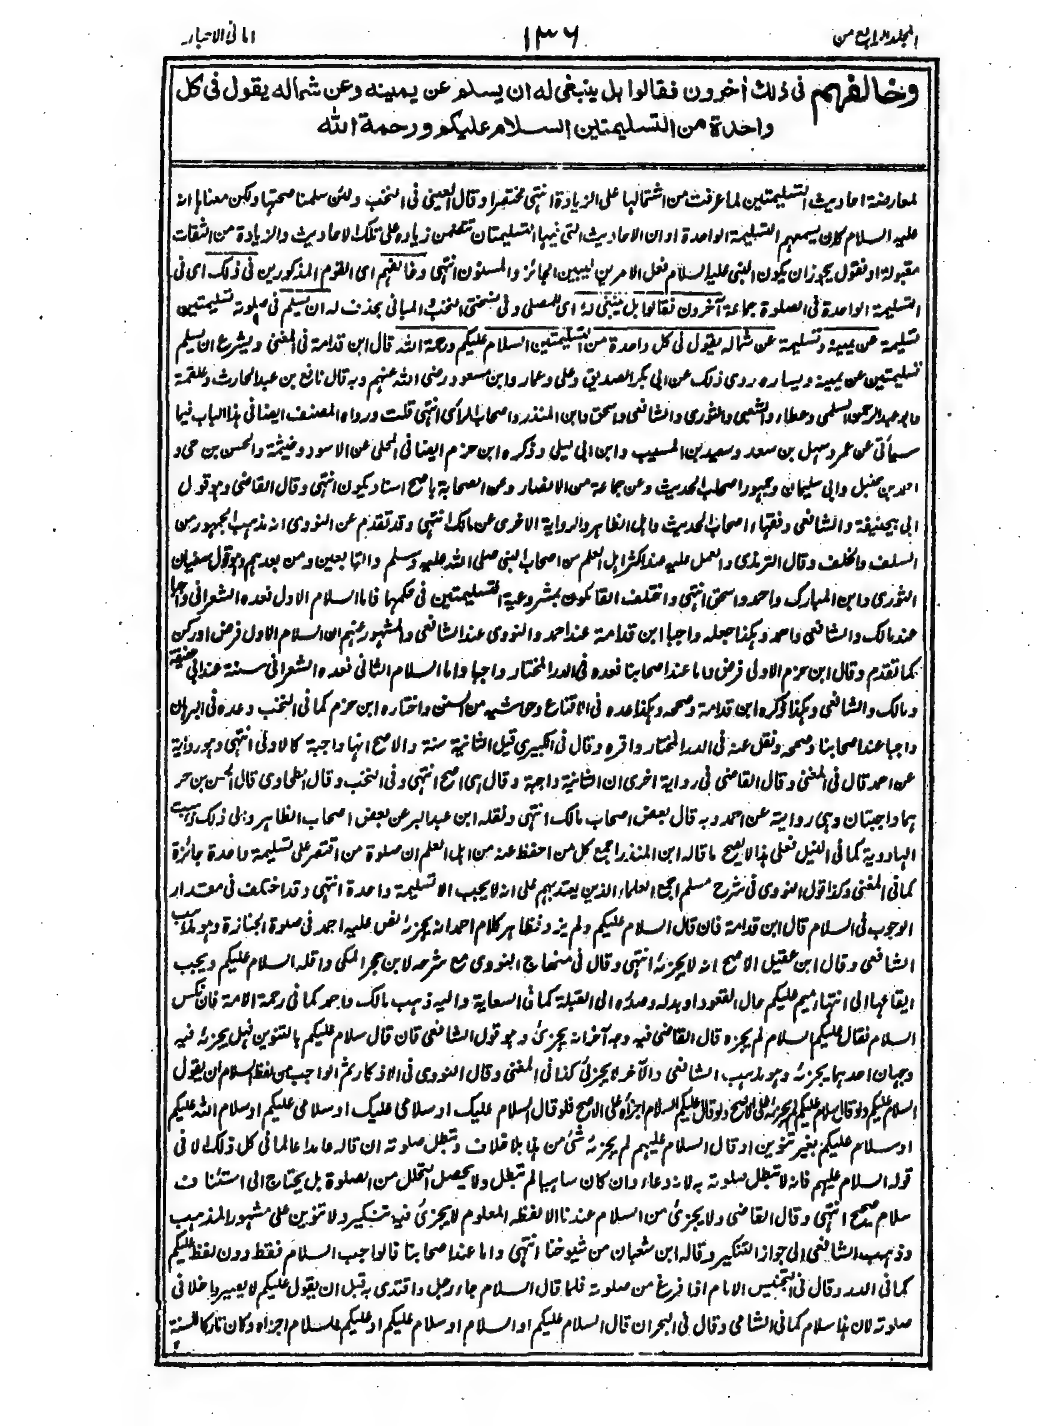 المجلد الرابع من
١٣٦
امانى الاحبار
وخالفهم فى ذلك أخرون فقالوا بل ينبغى له ان يسلم عن يمينه وعن شماله يقول فى كل
واحدة من التسليمتين السلام عليكم ورحمة الله
لمعارضة احاديث التسليمتين لما عرفت من اشتمالها على الزيادة انتهى مختصرا وقال العينى فى النخب ولئن سلمنا صحتها ولكن معناها انه
عليه السلام كان يسمعهم التسليمة الواحدة او ان الاحاديث التى فيها التسليمتان تتضمن زيادة على تلك الاحاديث والزيادة من الثقات
مقبولة او نقول يجوز ان يكون النبى عليه السلام فعل الامرين ليبين الجائز والمسنون انتهى وخالفهم اى القوم المذكورين فى ذلك اى فى
التسليمة الواحدة فى الصلوة جماعة آخرون فقالوا بل ينبغى له اى للمصلى وفى نسختى النخب والمبانى بحذف له ان يسلم فى صلوته تسليمتين
تسليمة عن يمينه وتسليمة عن شماله يقول فى كل واحدة من التسليمتين السلام عليكم ورحمة الله قال ابن قدامة فى المغنى ويشرع ان يسلم
تسليمتين عن يمينه ويساره روى ذلك عن ابى بكر الصديق وعلى وعمار وابن مسعود رضى الله عنهم وبه قال نافع بن عبد الحارث وعلقمة
وابو عبد الرحمن السلمى وعطاء والشعبى والثورى والشافعى واسحق وابن المنذر واصحاب الرأى انتهى قلت ورواه المصنف ايضا فى هذا الباب فيما
سيأتى عن عمر وسهل بن سعد وسعيد بن المسيب وابن ابى ليلى وذكره ابن حزم ايضا فى المحلى عن الاسود وخيثمة والحسن بن حى و
احمد بن حنبل وابى سليمان وجمهور اصحاب الحديث وعن جماعة من الانصار وعن الصحابة باصح اسناد يكون انتهى وقال القاضى وهو قول
ابى حنيفة والشافعى وفقهاء اصحاب الحديث واهل الظاهر والرواية الاخرى عن مالك انتهى وقد تقدم عن النووى انه مذهب الجمهور من
السلف والخلف وقال الترمذى والعمل عليه عند اكثر اهل العلم من اصحاب النبى صلى الله عليه وسلم والتابعين ومن بعدهم وهو قول سفيان
الثورى وابن المبارك واحمد واسحق انتهى واختلف القائلون بمشروعية التسليمتين فى حكمها فاما السلام الاول فعده الشعرانى واجبا
عند مالك والشافعى واحمد وهكذا جعله واجبا ابن قدامة عند احمد والنووى عند الشافعى والمشهور عنهم ان السلام الاول فرض اوركن
كما تقدم وقال ابن حزم الاولى فرض واما عند اصحابنا فعده فى الدر المختار واجبا واما السلام الثانى فعده الشعرانى سنة عند ابى حنيفة
ومالك والشافعى وهكذا ذكره ابن قدامة وصححه وهكذا عده فى الاقناع وحاشيه من السنن واختاره ابن حزم كما فى النخب وعده فى البرهان
واجبا عند اصحابنا وصححه ونقل عنه فى الدر المختار واقره وقال فى الكبيرى قيل الثانية سنة والاصح انها واجبة كالاولى انتهى وهو رواية
عن احمد قال فى المغنى وقال القاضى فى رواية اخرى ان الثانية واجبة وقال هى اصح انتهى وفى النخب وقال الطحاوى قال الحسن بن حر
هما واجبتان وهى رواية عن احمد وبه قال بعض اصحاب مالك انتهى ونقله ابن عبد البر عن بعض اصحاب الظاهر والى ذلك ذهبت
الهادوية كما فى النيل فعلى هذا لا يصح ما قاله ابن المنذر اجمع كل من احفظ عنه من اهل العلم ان صلوة من اقتصر على تسليمة واحدة جائزة
كما فى المغنى وكذا قول النووى فى شرح مسلم اجمع العلماء الذين يعتد بهم على انه لا يجب الا تسليمة واحدة انتهى وقد اختلف فى مقدار
الوجوب فى السلام قال ابن قدامة فان قال السلام عليكم ولم يزد فظاهر كلام احمد انه يجزئه نص عليه احمد فى صلوة الجنازة وهو مذهب
الشافعى وقال ابن عقيل الاصح انه لا يجزئه انتهى وقال فى منهاج النووى مع شرحه لابن حجر المكى واقله السلام عليكم ويجب
ايقاعها الى انتهاء ميم عليكم حال القعود او بدله وصدره الى القبلة كما فى السعاية واليه ذهب مالك واحمد كما فى رحمة الامة فان نكس
السلام فقال عليكم السلام لم يجزه قال القاضى فيه وجه آخر انه يجزئ وهو قول الشافعى فان قال سلام عليكم بالتنوين فهل يجزئه فيه
وجهان احدهما يجزئه وهو مذهب الشافعى والآخر لا يجزئ كذا فى المغنى وقال النووى فى الاذكار ثم الواجب من لفظ السلام ان يقول
السلام عليكم ولو قال سلام عليكم لم يجزئه على الاصح ولو قال عليكم السلام اجزأه على الاصح فلو قال السلام عليك او سلامى عليك او سلامى عليكم او سلام الله عليكم
او سلام عليكم بغير تنوين او قال السلام عليهم لم يجزئه شئ من هذا بلا خلاف وتبطل صلوته ان قاله عامدا عالما فى كل ذلك الا فى
قوله السلام عليهم فانه لا تبطل صلوته به لانه دعاء وان كان ساهيا لم تبطل ولا يحصل التحلل من الصلوة بل يحتاج الى استئناف
سلام صحيح انتهى وقال القاضى ولا يجزئ من السلام عندنا الا لفظه المعلوم لا يجزئ فيه تنكير ولا تنوين على مشهور المذهب
وذهب الشافعى الى جواز التنكير وقاله ابن شعبان من شيوخنا انتهى واما عند اصحابنا فالواجب السلام فقط دون لفظ عليكم
كما فى الدر وقال فى التجنيس الامام اذا فرغ من صلوته فلما قال السلام جاء رجل واقتدى به قبل ان يقول عليكم لا يصير داخلا فى
صلوته لان هذا سلام كما فى الشامى وقال فى البحر ان قال السلام عليكم او السلام او سلام عليكم او عليكم السلام اجزاه وكان تاركا للسنة